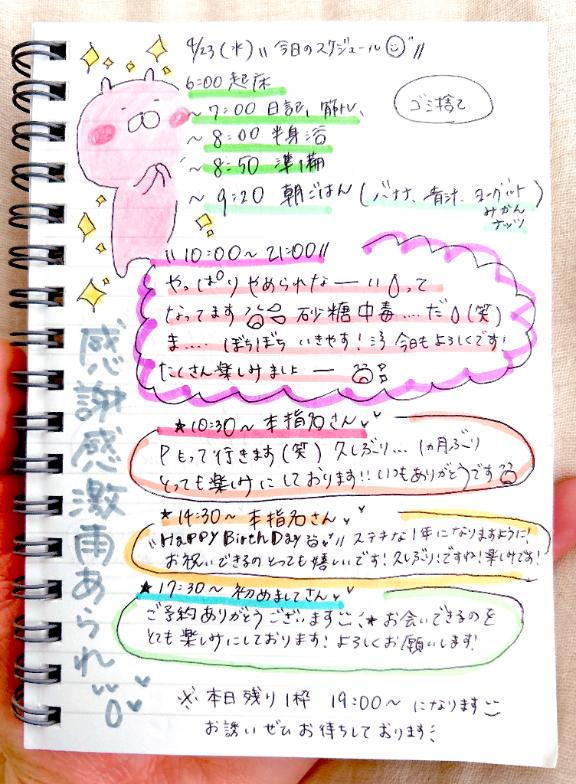 4/23(水) 〃今日のスケジュール〃
6:00 起床
~7:00 日記、筋トレ、
~8:00 半身浴
~8:50 準備
~9:20 朝ごはん (バナナ、青汁、ヨーグルト)
みかん
ナッツ
ゴミ捨て
〃10:00~21:00〃
やっぱりやめられなーいって
なってます 砂糖中毒....だ(笑)
ま.... ぼちぼち いきやす! 今日もよろしくです!
たくさん楽しみましょー
★10:30~ 本指名さん
Pもって行きます(笑) 久しぶり... 1ヵ月ぶり
とっても楽しみにしております!! いつもありがとうです
★14:30~ 本指名さん
〃HAPPY BirthDay〃 ステキな1年になりますように!
お祝いできるのとっても嬉しいです! 久しぶり!ですね! 楽しみです!
★17:30~ 初めましてさん
ご予約ありがとうございます ★お会いできるのを
とても楽しみにしております! よろしくお願いします!
感謝感激雨あられ
※本日残り1枠 19:00~ になります
お誘いぜひお待ちしております